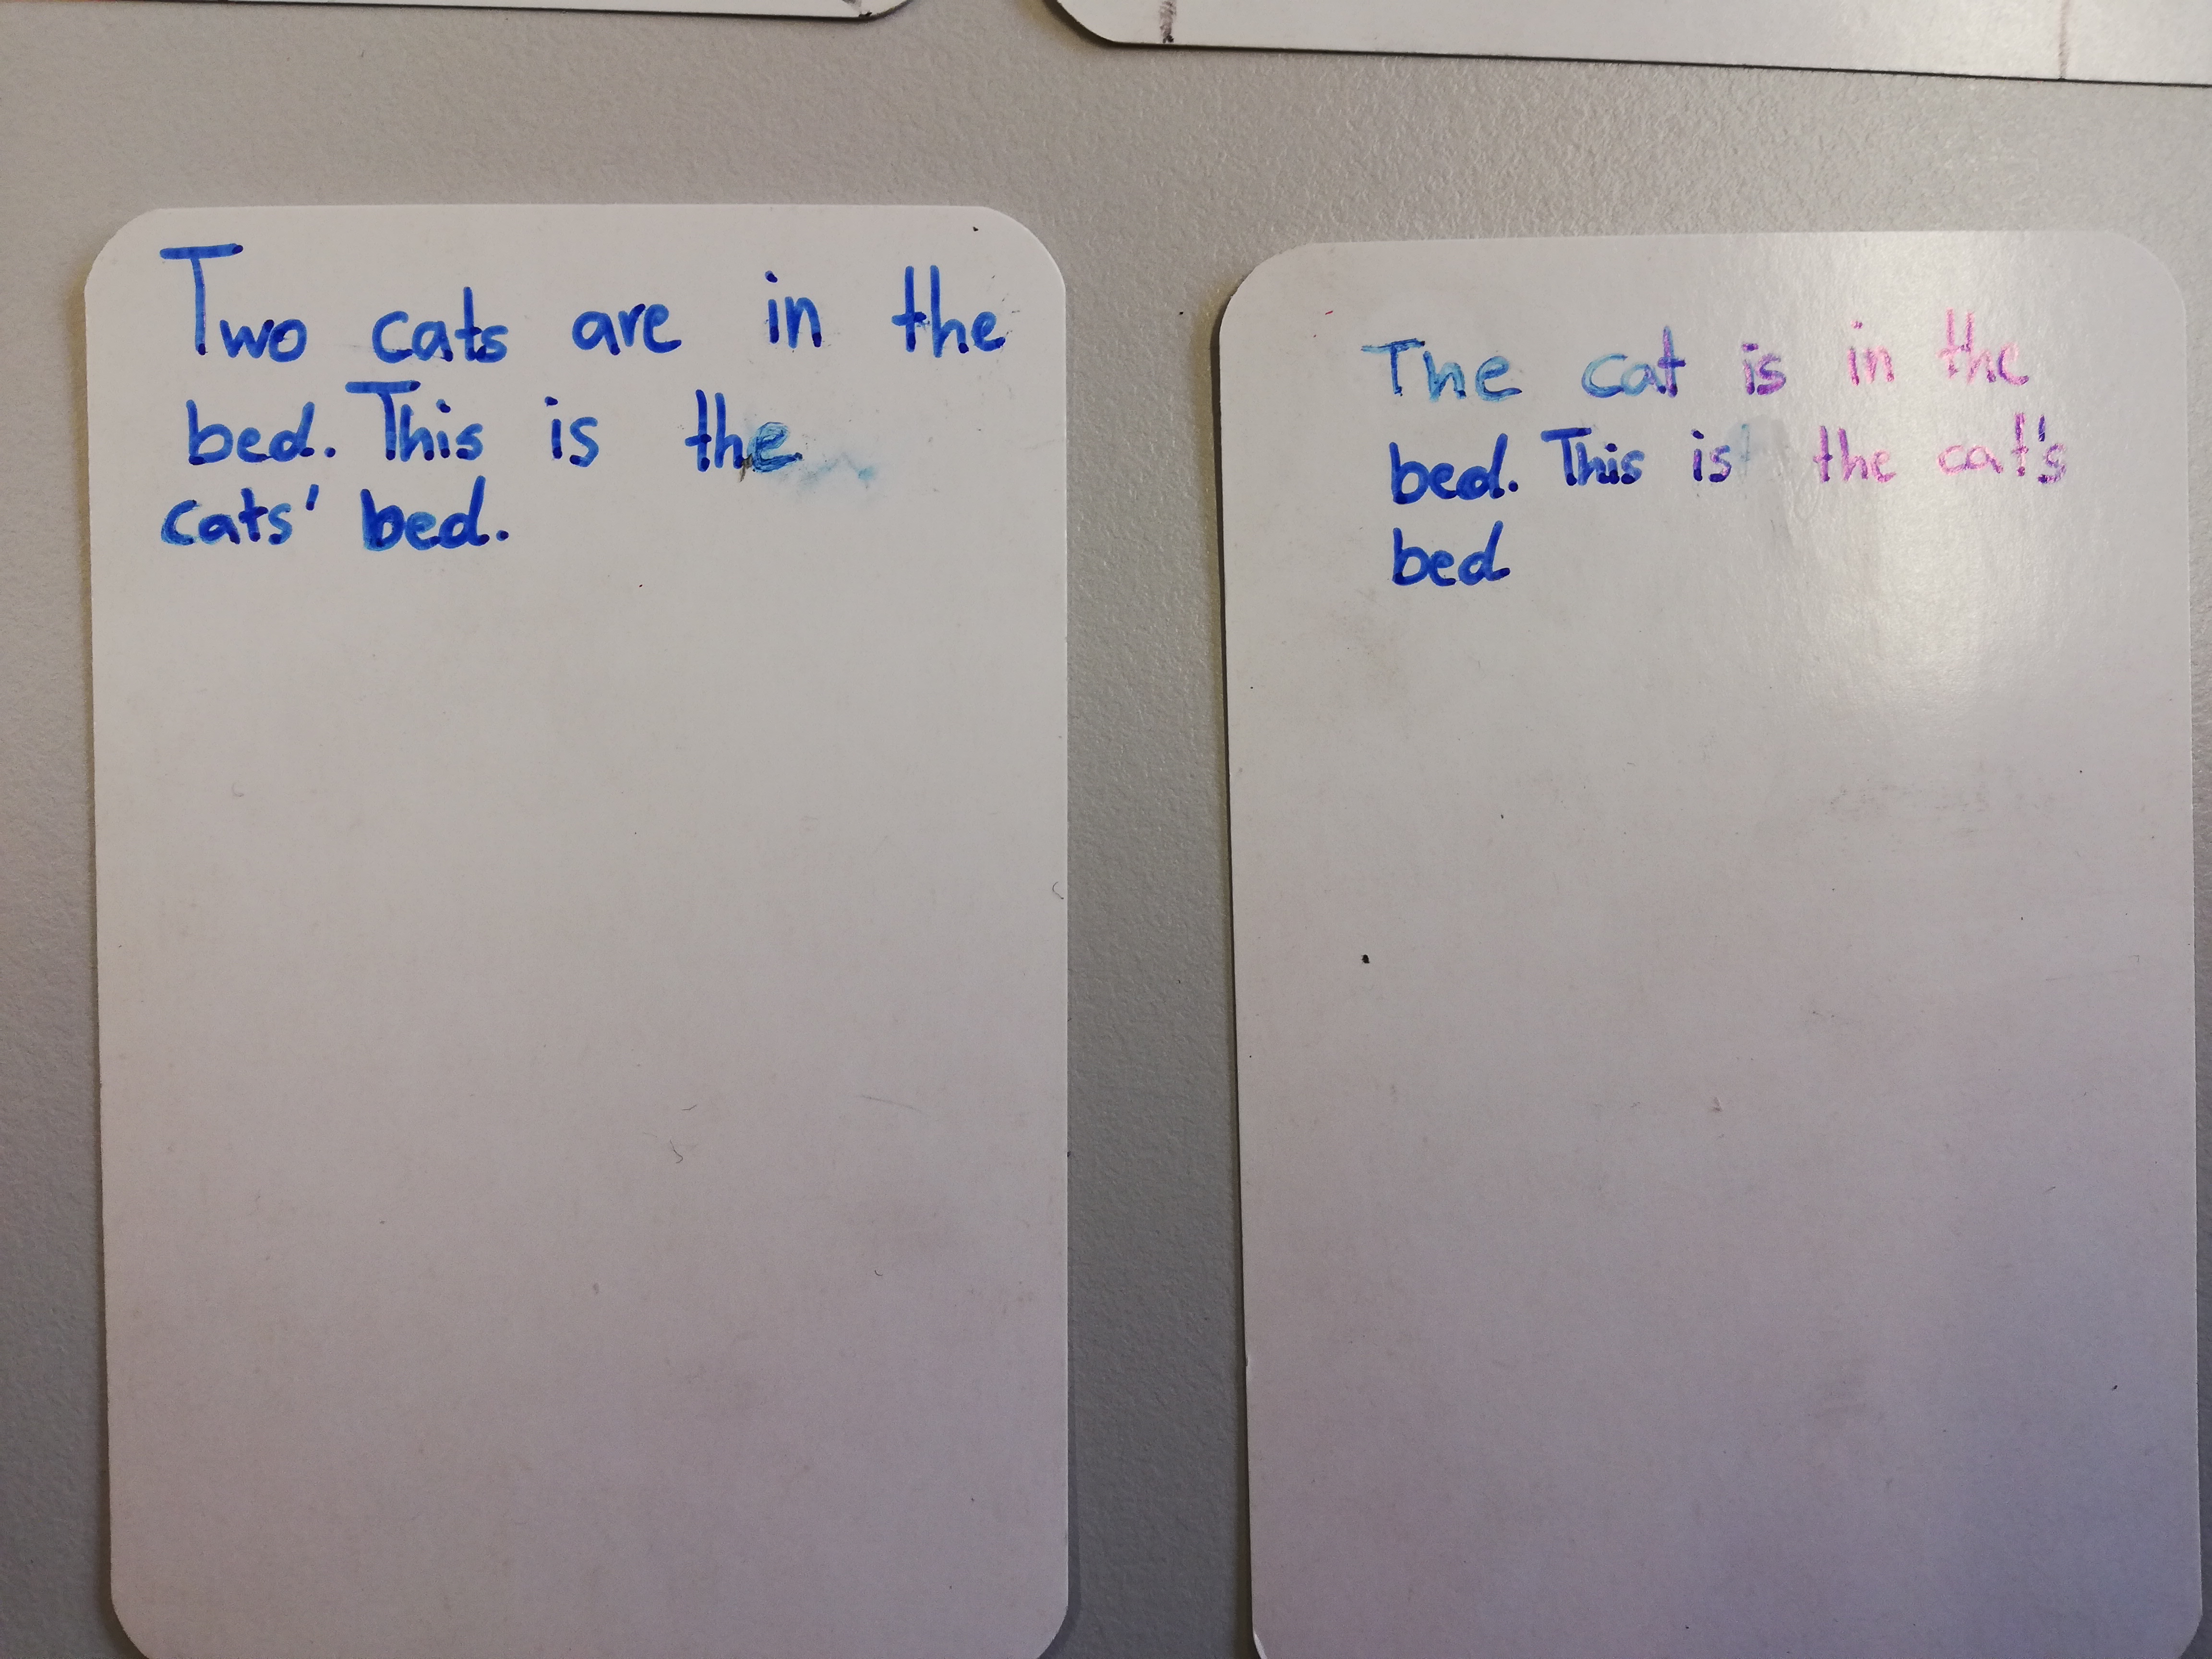 Two cats are in the
bed. This is the
cats' bed.
The cat is in the
bed. This is the cat's
bed